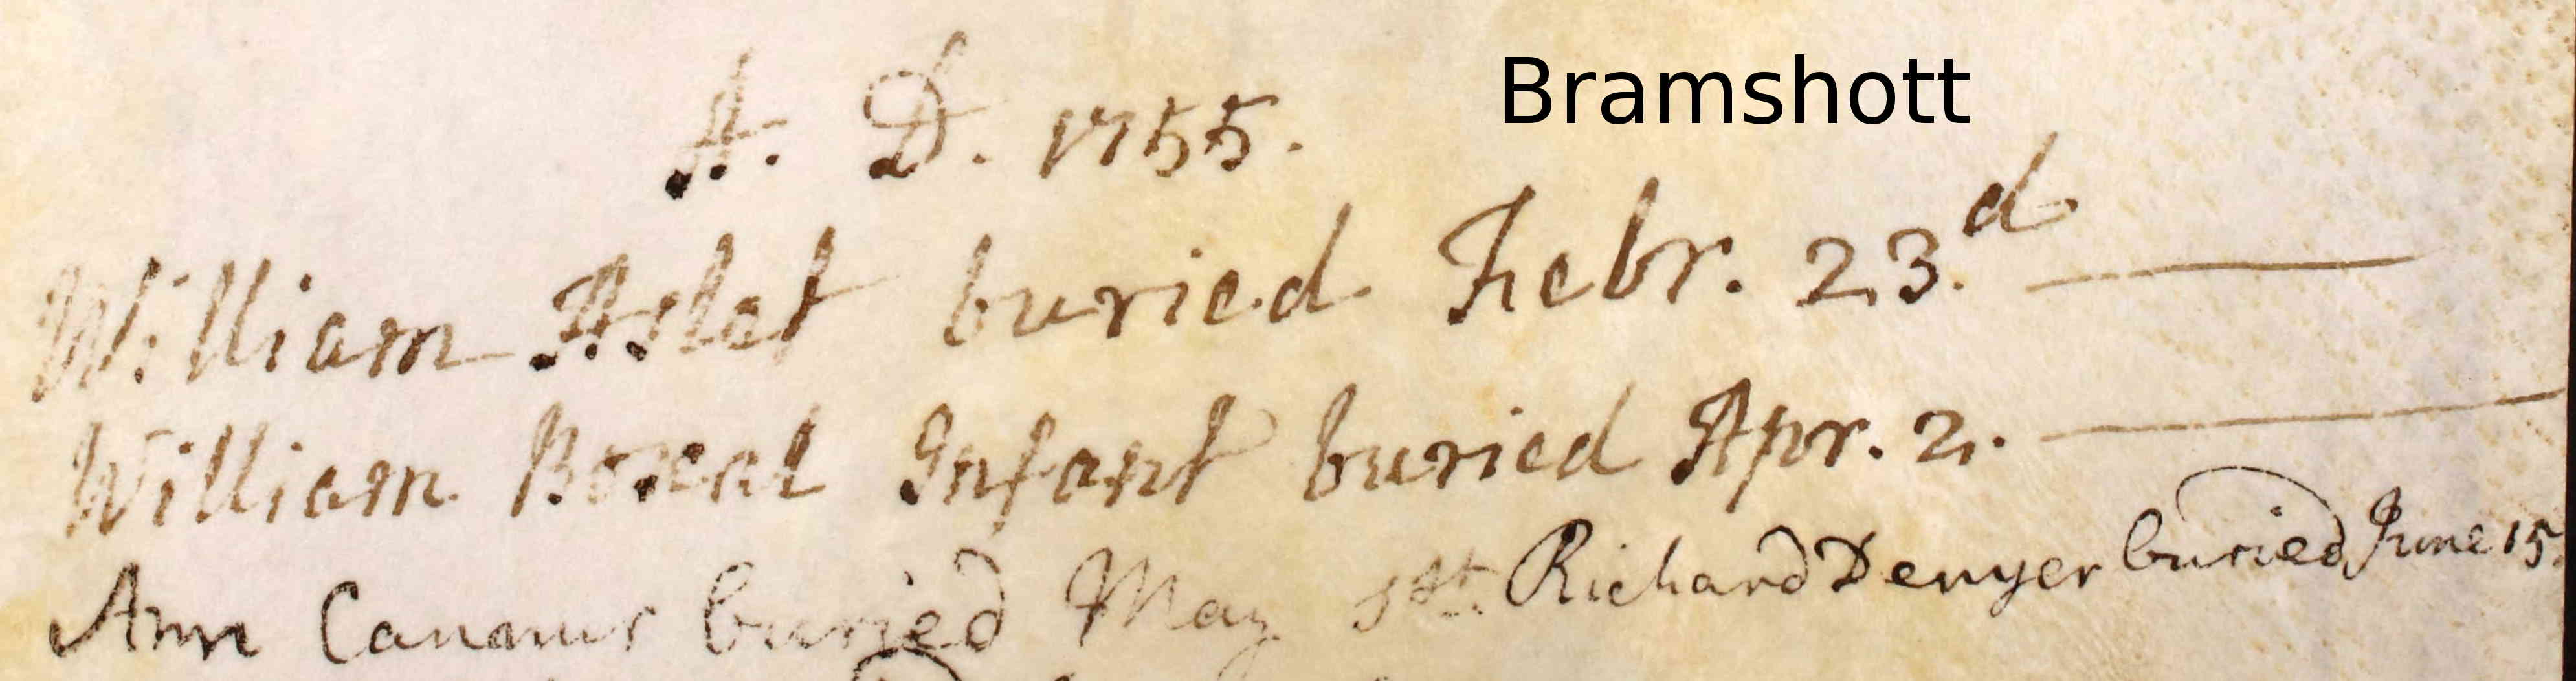 Bramshott
A. D. 1755.
William Aslat buried Febr. 23.d
William Boxal Infant buried Apr. 2.
Ann buried May Richard Denyer buried June 15.